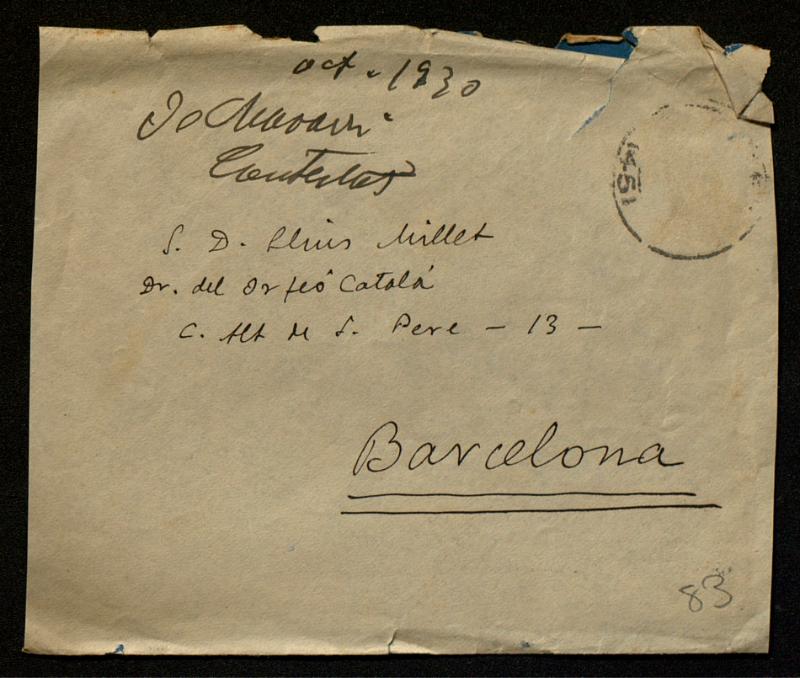 oct. 1930
Contestat
S. D. Lluis Millet
Dr. del Orfeó Catalá
C. Alt de S. Pere - 13 -
Barcelona
83